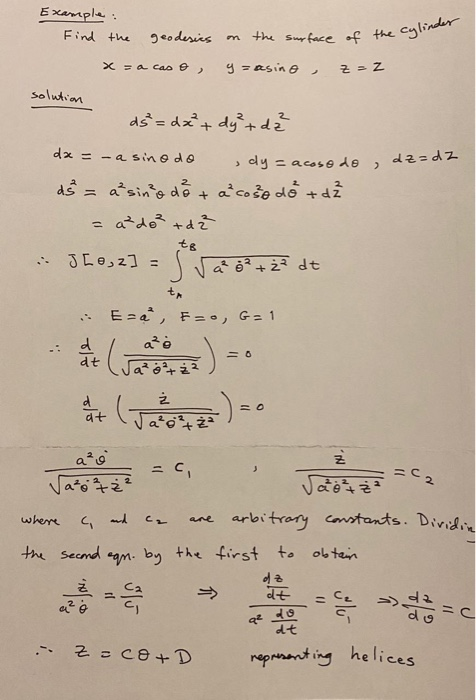 Example :
Find the geodesics on the surface of the cylinder
x = a cos θ , y = a sin θ , z = z
solution
ds² = dx² + dy² + dz²
dx = - a sin θ dθ , dy = a cos θ dθ , dz = dz
ds² = a² sin² θ dθ² + a² cos² θ dθ² + dz²
= a² dθ² + dz²
∴ J[θ, z] = ∫_{t_A}^{t_B} √(a² θ̇² + ż²) dt
∴ E = a² , F = 0 , G = 1
∴ d/dt ( a² θ̇ / √(a² θ̇² + ż²) ) = 0
d/dt ( ż / √(a² θ̇² + ż²) ) = 0
a² θ̇ / √(a² θ̇² + ż²) = C₁ , ż / √(a² θ̇² + ż²) = C₂
where C₁ and C₂ are arbitrary constants. Dividin
the second eqn. by the first to obtain
ż / a² θ̇ = C₂ / C₁ ⇒ (dz/dt) / (a² dθ/dt) = C₂ / C₁ ⇒ dz/dθ = C
∴ z = Cθ + D representing helices